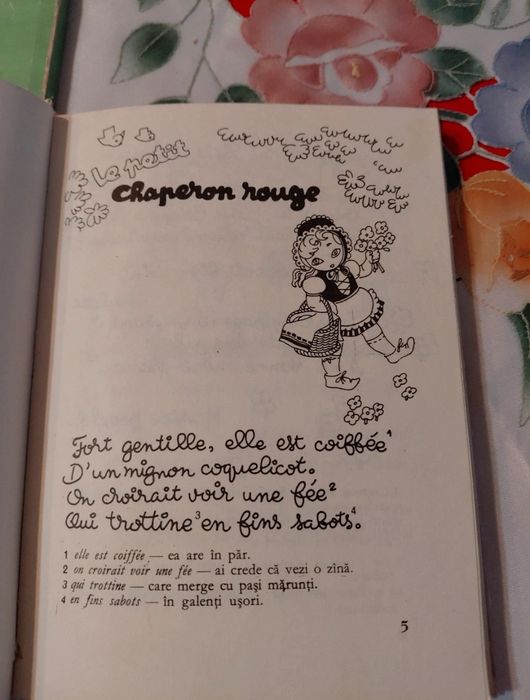 Le petit
chaperon rouge
Fort gentille, elle est coiffée¹
D'un mignon coquelicot.
On croirait voir une fée²
Qui trottine³ en fins sabots.⁴
1 elle est coiffée — ea are în păr.
2 on croirait voir une fée — ai crede că vezi o zînă.
3 qui trottine — care merge cu pași mărunți.
4 en fins sabots — în galenți ușori.
5